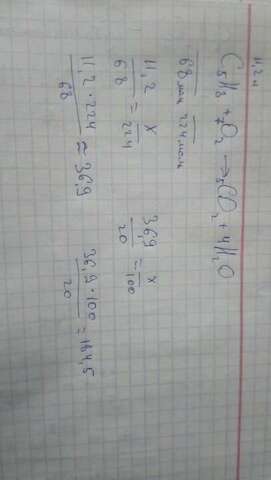 11,2 л
C₅H₈ + 7O₂ → 5CO₂ + 4H₂O
68 224
11,2/68 = x/224 36,9/20 = x/100
11,2 · 224/68 ≈ 36,9 36,9 · 100/20 = 184,5